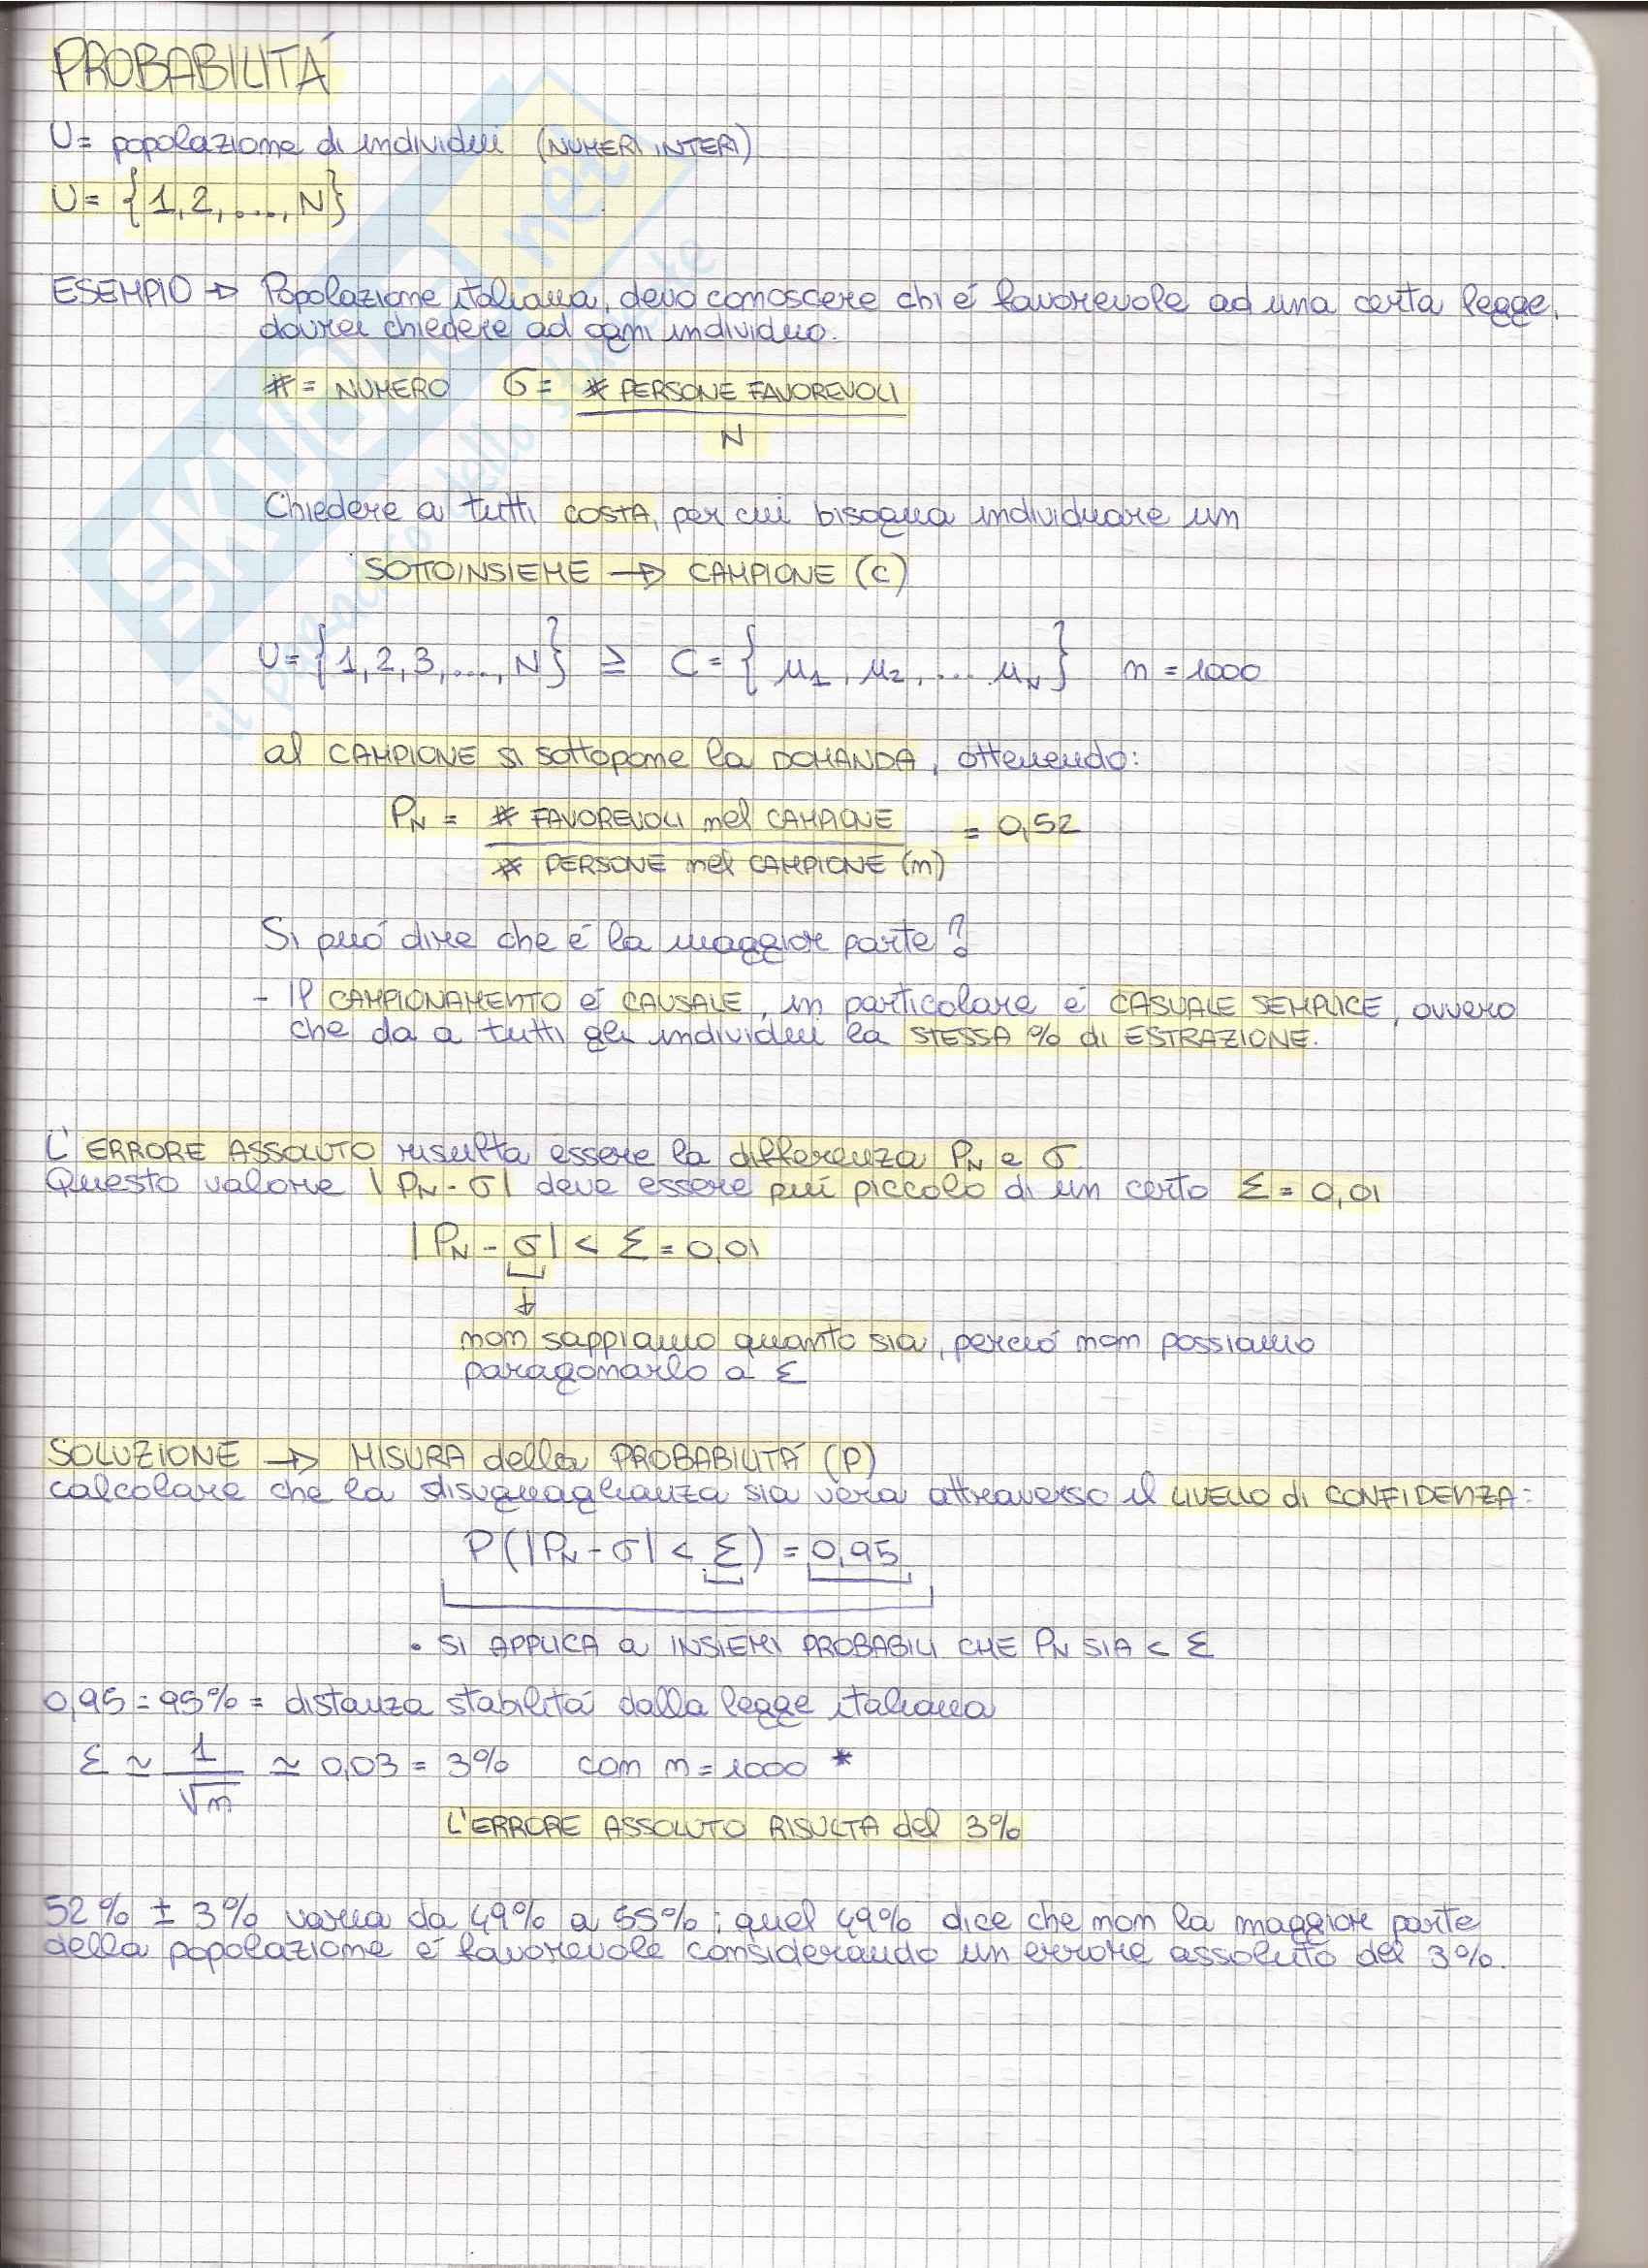 PROBABILITÁ
U= popolazione di individui (NUMERI INTERI)
U= {1,2,....,N}
ESEMPIO → Popolazione italiana, devo conoscere chi é favorevole ad una certa legge,
dovrei chiedere ad ogni individuo.
#= NUMERO σ= # PERSONE FAVOREVOLI
N
Chiedere a tutti COSTA, per cui bisogna individuare un
SOTTOINSIEME → CAMPIONE (C)
U={1,2,3,....,N} ≥ C={μ1, μ2, ... μN} n=1000
al CAMPIONE si sottopone la DOMANDA, ottenendo:
PN = # FAVOREVOLI nel CAMPIONE = 0,52
# PERSONE nel CAMPIONE (n)
Si puó dire che é la maggior parte?
- Il CAMPIONAMENTO é CAUSALE, in particolare é CASUALE SEMPLICE, ovvero
che da a tutti gli individui la STESSA % di ESTRAZIONE.
L'ERRORE ASSOLUTO risulta essere la differenza PN e σ
Questo valore |PN-σ| deve essere piú piccolo di un certo Σ=0,01
|PN-σ| < Σ=0,01
↓
non sappiamo quanto sia, perció non possiamo
paragonarlo a Σ
SOLUZIONE → MISURA della PROBABILITÁ (P)
calcolare che la disuguaglianza sia vera attraverso il LIVELLO di CONFIDENZA:
P(|PN-σ| < Σ) = 0,95
• SI APPLICA a INSIEMI PROBABILI CHE PN SIA < Σ
0,95=95%= distanza stabilitá dalla legge italiana
Σ ≃ 1/√n ≃ 0,03=3% con n=1000 *
L'ERRORE ASSOLUTO RISULTA del 3%
52% ± 3% varia da 49% a 55%; quel 49% dice che non la maggior parte
della popolazione é favorevole considerando un errore assoluto del 3%.
SKUOLA.net
il paradiso dello studente